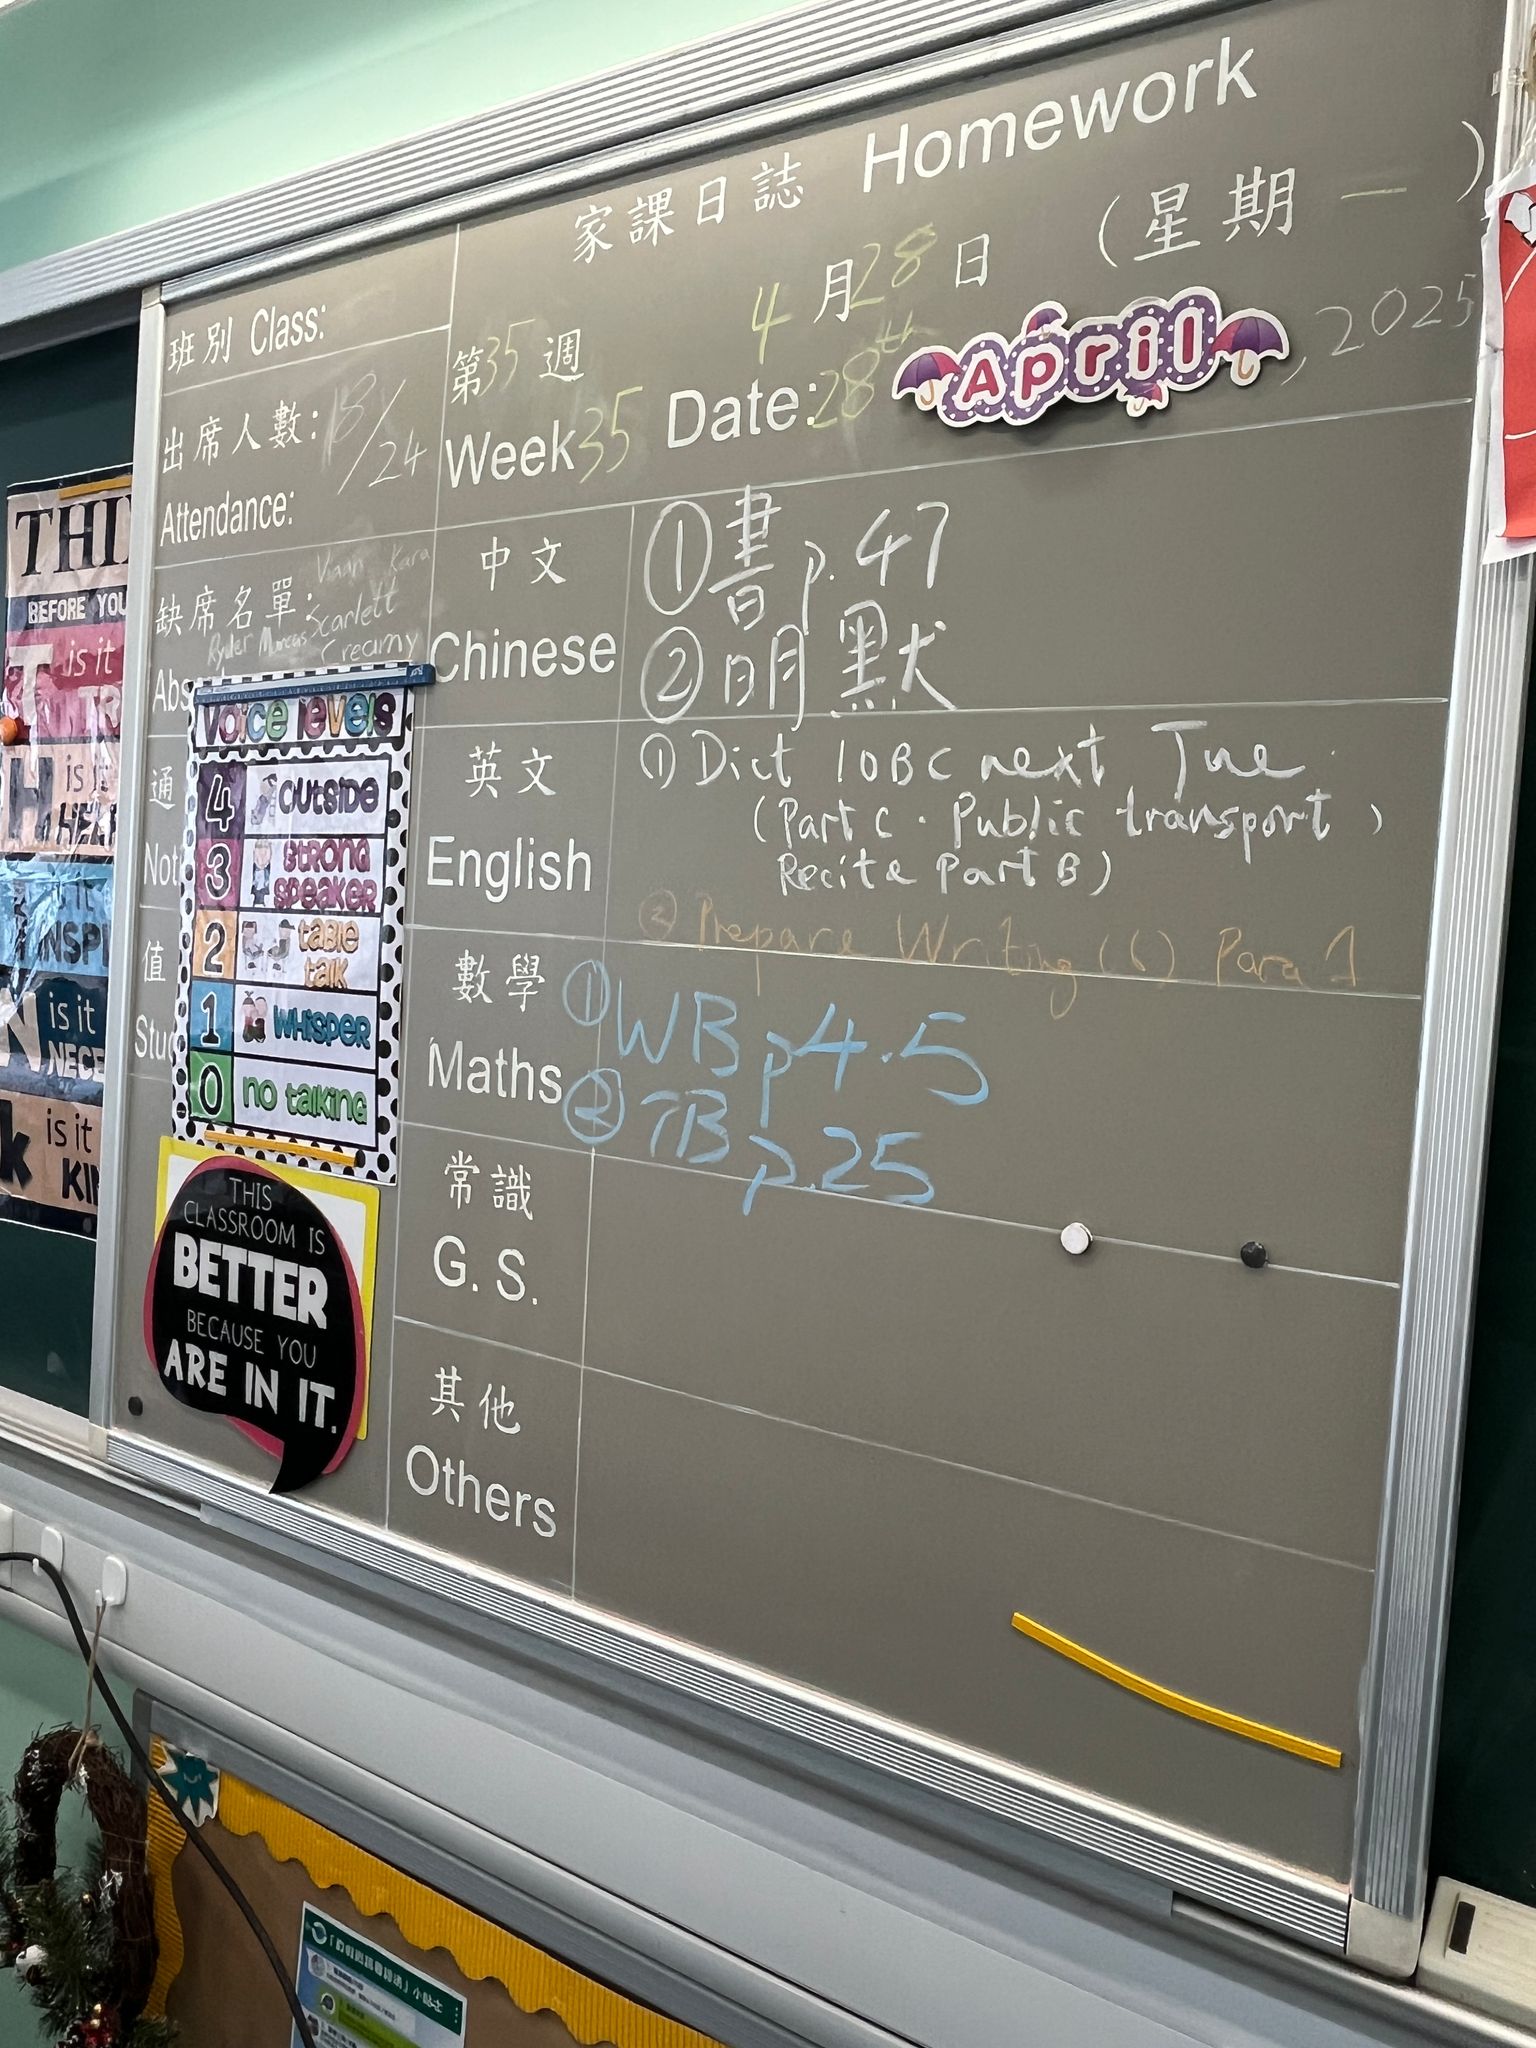 家課日誌 Homework
4月28日 (星期一)
班別 Class:
第35週
Week 35
Date: 28th April, 2025
出席人數: 18/24
Attendance:
缺席名單:
Kara
Scarlett
Ryder Marcus Creamy
Abs
通
Not
值
Stud
中文
Chinese
① 書 p.47
② 明 默
英文
English
① Dict 10BC next Tue.
(Part C. Public transport)
Recite Part B)
② Prepare Writing (6) Para 1
數學
Maths
① WB p4.5
② TB p.25
常識
G. S.
其他
Others
voice levels
4 outside
3 strong speaker
2 table talk
1 whisper
0 no talking
THIS
CLASSROOM IS
BETTER
BECAUSE YOU
ARE IN IT.
THI
BEFORE YOU
T is it
TR
H is it
HEL
is it
INSPI
N is it
NECE
k is it
KIN